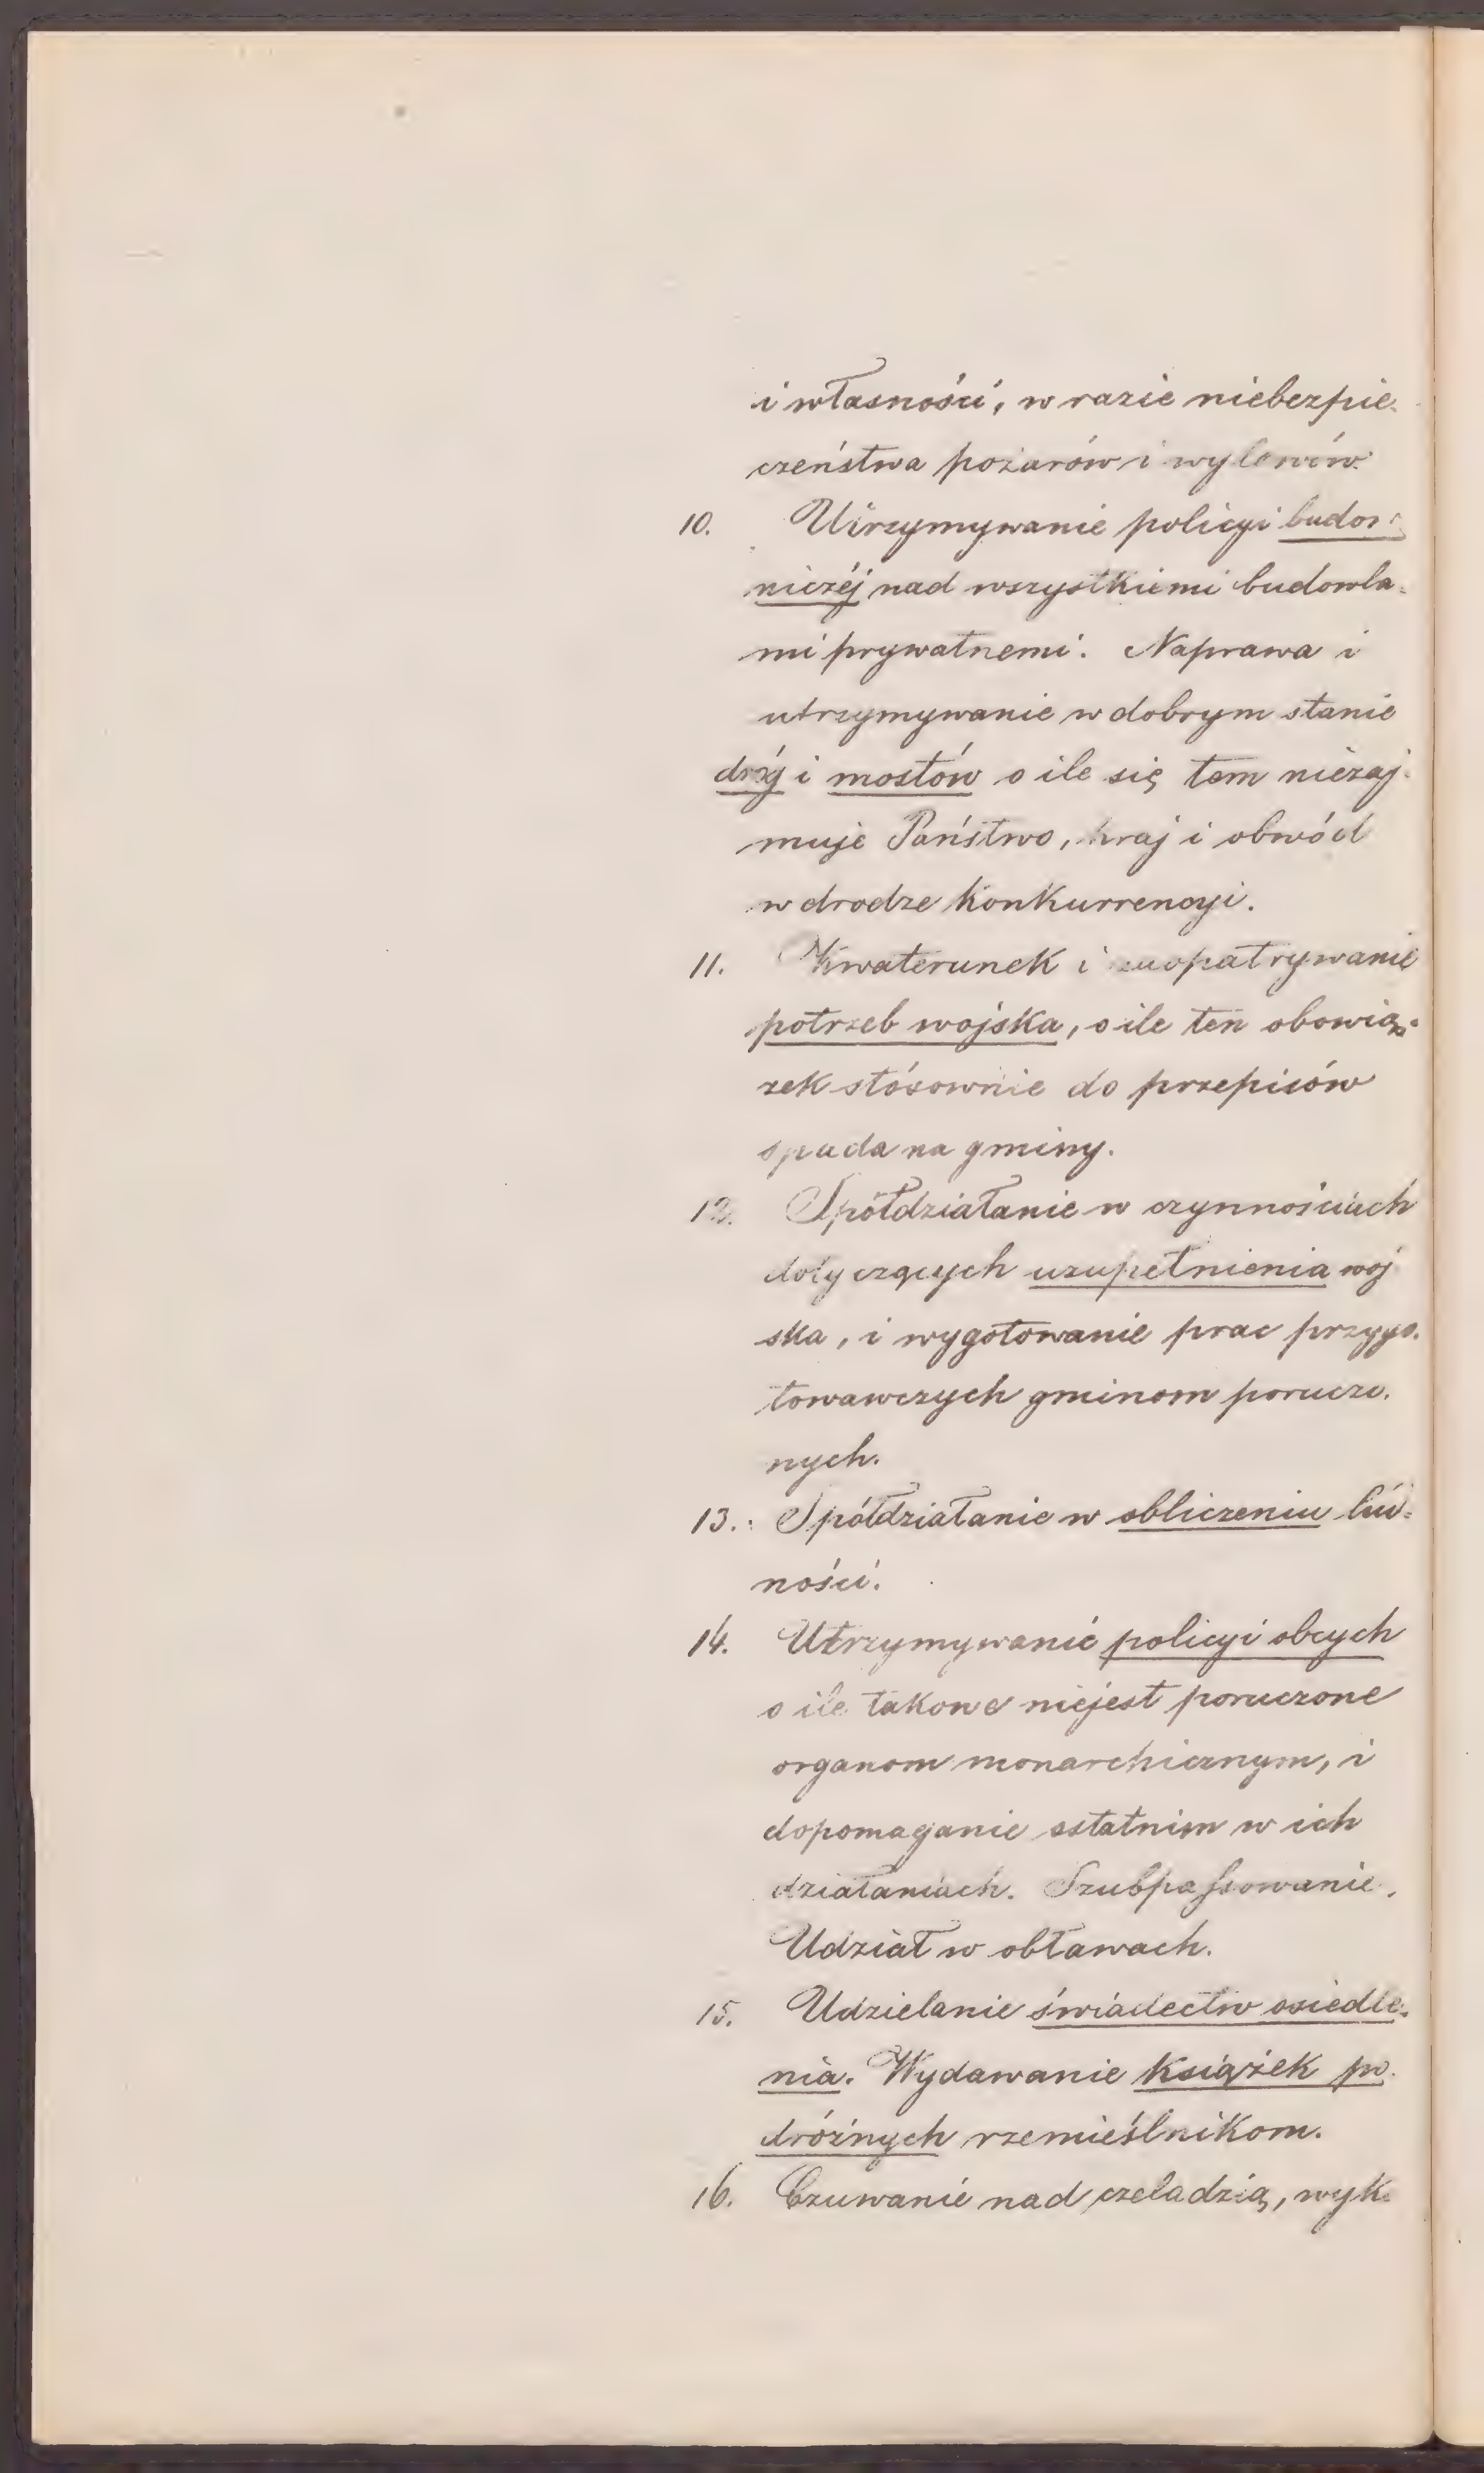 i własności, w razie niebezpie-
czeństwa pożarów i wylewów.
10. Utrzymywanie policyi budow-
niczéj nad wszystkiemi budowla-
mi prywatnemi. Naprawa i
utrzymywanie w dobrym stanie
dróg i mostów o ile się tem niezaj-
muje Państwo, kraj i obwód
w drodze konkurrencyi.
11. Kwaterunek i zaopatrywanie
potrzeb wojska, o ile ten obowią-
zek stósownie do przepisów
spada na gminy.
12. Spółdziałanie w czynnościach
dotyczących uzupełnienia woj
ska, i wygotowanie prac przygo-
towawczych gminom porucze-
nych.
13. Spółdziałanie w obliczeniu lud-
ności.
14. Utrzymywanie policyi obcych
o ile takowe niejest poruczone
organom monarchicznym, i
dopomaganie ostatnim w ich
działaniach. Szubpassowanie.
Udział w obławach.
15. Udzielanie świadectw osiedle-
nia. Wydawanie książek po-
dróżnych rzemieślnikom.
16. Czuwanie nad czeladzią, wyk-